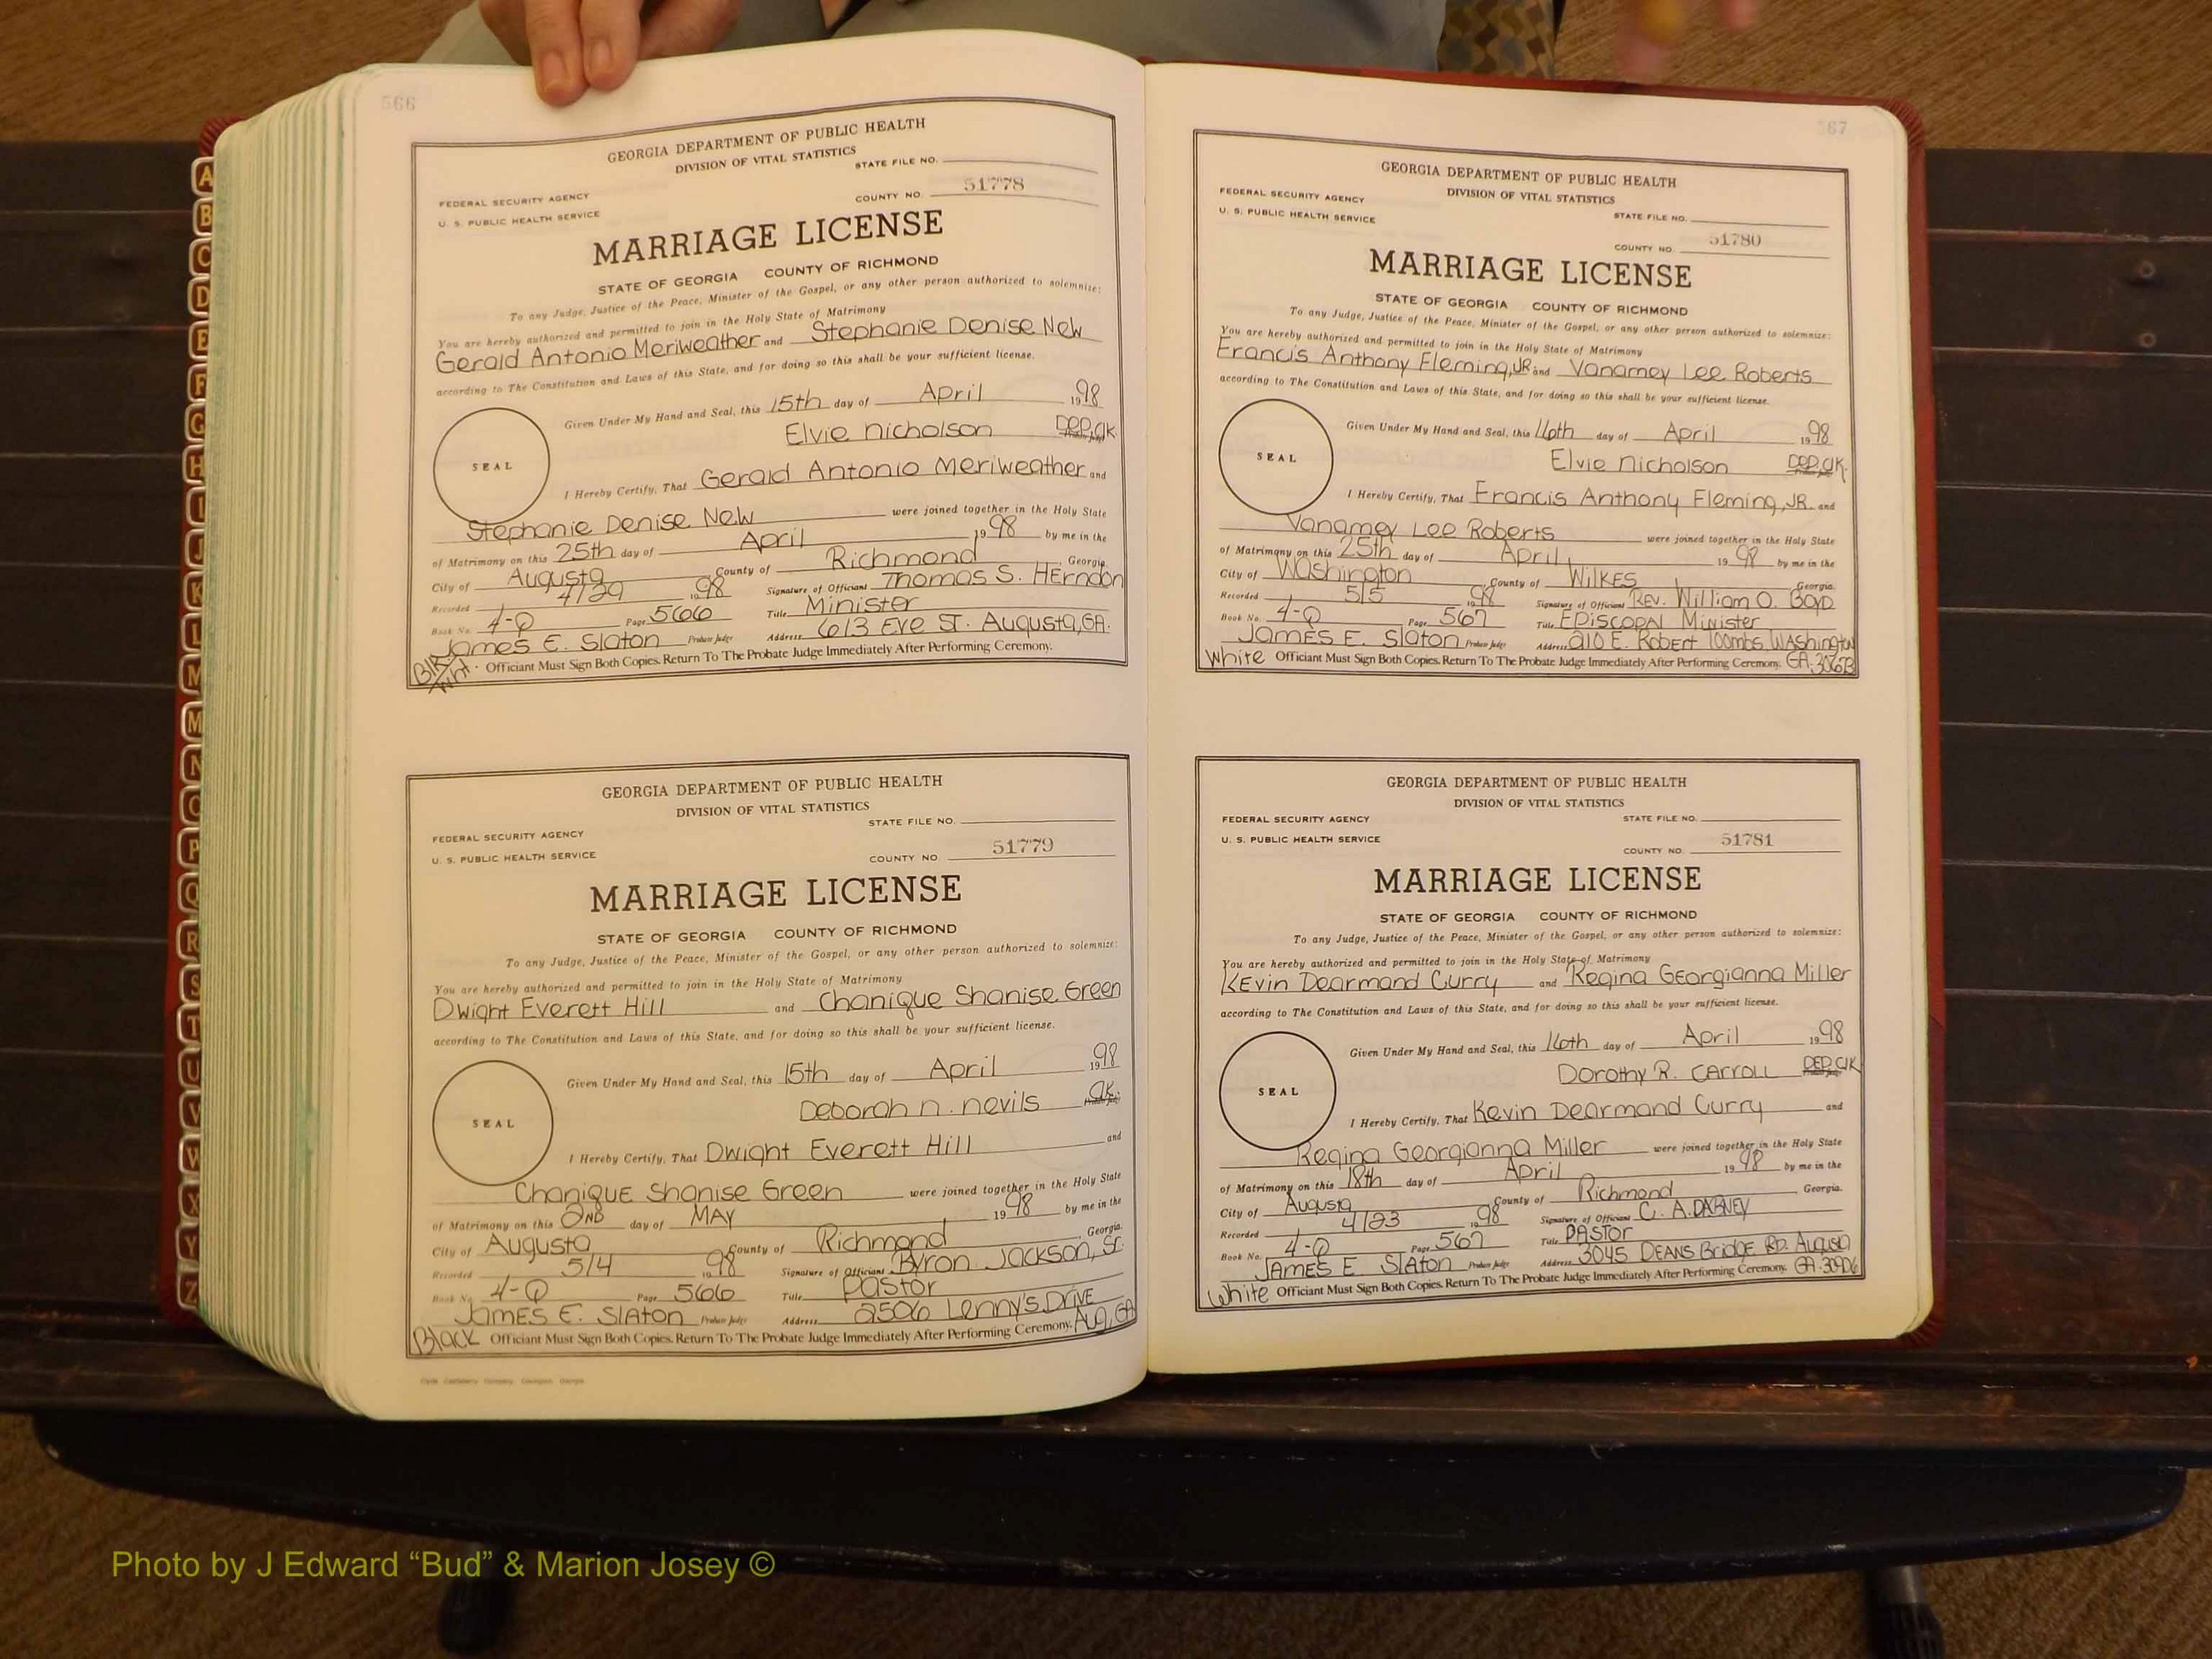 566
GEORGIA DEPARTMENT OF PUBLIC HEALTH
DIVISION OF VITAL STATISTICS
STATE FILE NO.
FEDERAL SECURITY AGENCY
COUNTY NO. 51778
U. S. PUBLIC HEALTH SERVICE
MARRIAGE LICENSE
STATE OF GEORGIA COUNTY OF RICHMOND
To any Judge, Justice of the Peace, Minister of the Gospel, or any other person authorized to solemnize:
You are hereby authorized and permitted to join in the Holy State of Matrimony
Gerald Antonio Meriweather and Stephanie Denise New
according to The Constitution and Laws of this State, and for doing so this shall be your sufficient license.
Given Under My Hand and Seal, this 15th day of April 1998
Elvie Nicholson DEP. CLK.
SEAL
I Hereby Certify, That Gerald Antonio Meriweather and
Stephanie Denise New were joined together in the Holy State
of Matrimony on this 25th day of April 1998 by me in the
City of Augusta County of Richmond Georgia.
Recorded 4/29 1998 Signature of Officiant Thomas S. Herndon
Book No. 4-Q Page 566 Title Minister
James E. Slaton Probate Judge Address 613 Eve St. Augusta, GA.
Blk/Wht. Officiant Must Sign Both Copies. Return To The Probate Judge Immediately After Performing Ceremony.
GEORGIA DEPARTMENT OF PUBLIC HEALTH
DIVISION OF VITAL STATISTICS
STATE FILE NO.
FEDERAL SECURITY AGENCY
COUNTY NO 51779
U. S. PUBLIC HEALTH SERVICE
MARRIAGE LICENSE
STATE OF GEORGIA COUNTY OF RICHMOND
To any Judge, Justice of the Peace, Minister of the Gospel, or any other person authorized to solemnize:
You are hereby authorized and permitted to join in the Holy State of Matrimony
Dwight Everett Hill and Chanique Shanise Green
according to The Constitution and Laws of this State, and for doing so this shall be your sufficient license.
Given Under My Hand and Seal, this 15th day of April 1998
Deborah N. Nevils Clk.
SEAL
I Hereby Certify, That Dwight Everett Hill and
Chanique Shanise Green were joined together in the Holy State
of Matrimony on this 2ND day of MAY 1998 by me in the
City of Augusta County of Richmond Georgia.
Recorded 5/4 1998 Signature of Officiant Byron Jackson, Sr.
Book No. 4-Q Page 566 Title Pastor
James E. Slaton Probate Judge Address 2506 Lenny's Drive
Black Officiant Must Sign Both Copies. Return To The Probate Judge Immediately After Performing Ceremony. Aug, GA
567
GEORGIA DEPARTMENT OF PUBLIC HEALTH
FEDERAL SECURITY AGENCY
DIVISION OF VITAL STATISTICS
U. S. PUBLIC HEALTH SERVICE
STATE FILE NO.
COUNTY NO. 51780
MARRIAGE LICENSE
STATE OF GEORGIA COUNTY OF RICHMOND
To any Judge, Justice of the Peace, Minister of the Gospel, or any other person authorized to solemnize:
You are hereby authorized and permitted to join in the Holy State of Matrimony
Francis Anthony Fleming, JR. and Vanamey Lee Roberts
according to The Constitution and Laws of this State, and for doing so this shall be your sufficient license.
Given Under My Hand and Seal, this 16th day of April 1998
Elvie Nicholson DEP. CLK.
SEAL
I Hereby Certify, That Francis Anthony Fleming, JR. and
Vanamey Lee Roberts were joined together in the Holy State
of Matrimony on this 25th day of April 1998 by me in the
City of Washington County of Wilkes Georgia.
Recorded 5/5 1998 Signature of Officiant Rev. William O. Boyd
Book No. 4-Q Page 567 Title Episcopal Minister
James E. Slaton Probate Judge Address 210 E. Robert Toombs, Washington
White Officiant Must Sign Both Copies. Return To The Probate Judge Immediately After Performing Ceremony. GA. 30673
GEORGIA DEPARTMENT OF PUBLIC HEALTH
DIVISION OF VITAL STATISTICS
FEDERAL SECURITY AGENCY
STATE FILE NO.
U. S. PUBLIC HEALTH SERVICE
COUNTY NO. 51781
MARRIAGE LICENSE
STATE OF GEORGIA COUNTY OF RICHMOND
To any Judge, Justice of the Peace, Minister of the Gospel, or any other person authorized to solemnize:
You are hereby authorized and permitted to join in the Holy State of Matrimony
Kevin Dearmand Curry and Regina Georgianna Miller
according to The Constitution and Laws of this State, and for doing so this shall be your sufficient license.
Given Under My Hand and Seal, this 16th day of April 1998
Dorothy R. Carroll DEP. CLK
SEAL
I Hereby Certify, That Kevin Dearmand Curry and
Regina Georgianna Miller were joined together in the Holy State
of Matrimony on this 18th day of April 1998 by me in the
City of Augusta County of Richmond Georgia.
Recorded 4/23 1998 Signature of Officiant C. A. DABNEY
Book No. 4-Q Page 567 Title Pastor
James E Slaton Probate Judge Address 3045 Deans Bridge RD. Augusta
White Officiant Must Sign Both Copies. Return To The Probate Judge Immediately After Performing Ceremony. GA. 30906
A
B
C
D
E
F
G
H
I
J
K
L
M
M
N
O
P
Q
R
S
T
U
V
W
X
Y
Z
Photo by J Edward “Bud” & Marion Josey ©